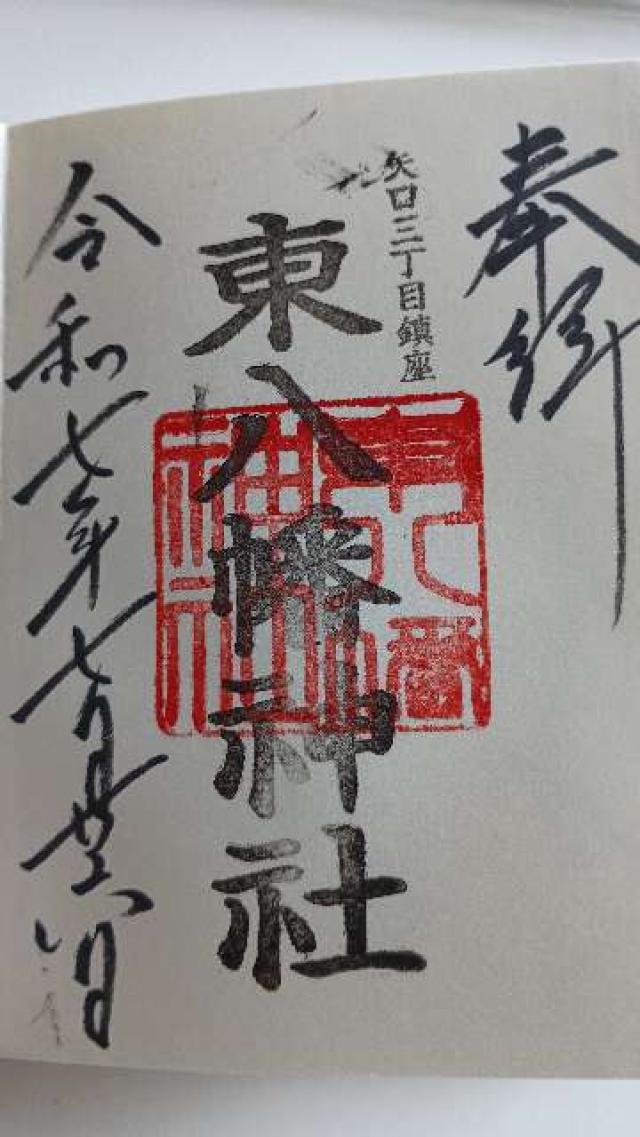 奉拝
矢口三丁目鎮座
東八幡神社
東八幡神社
令和七年七月廿六日